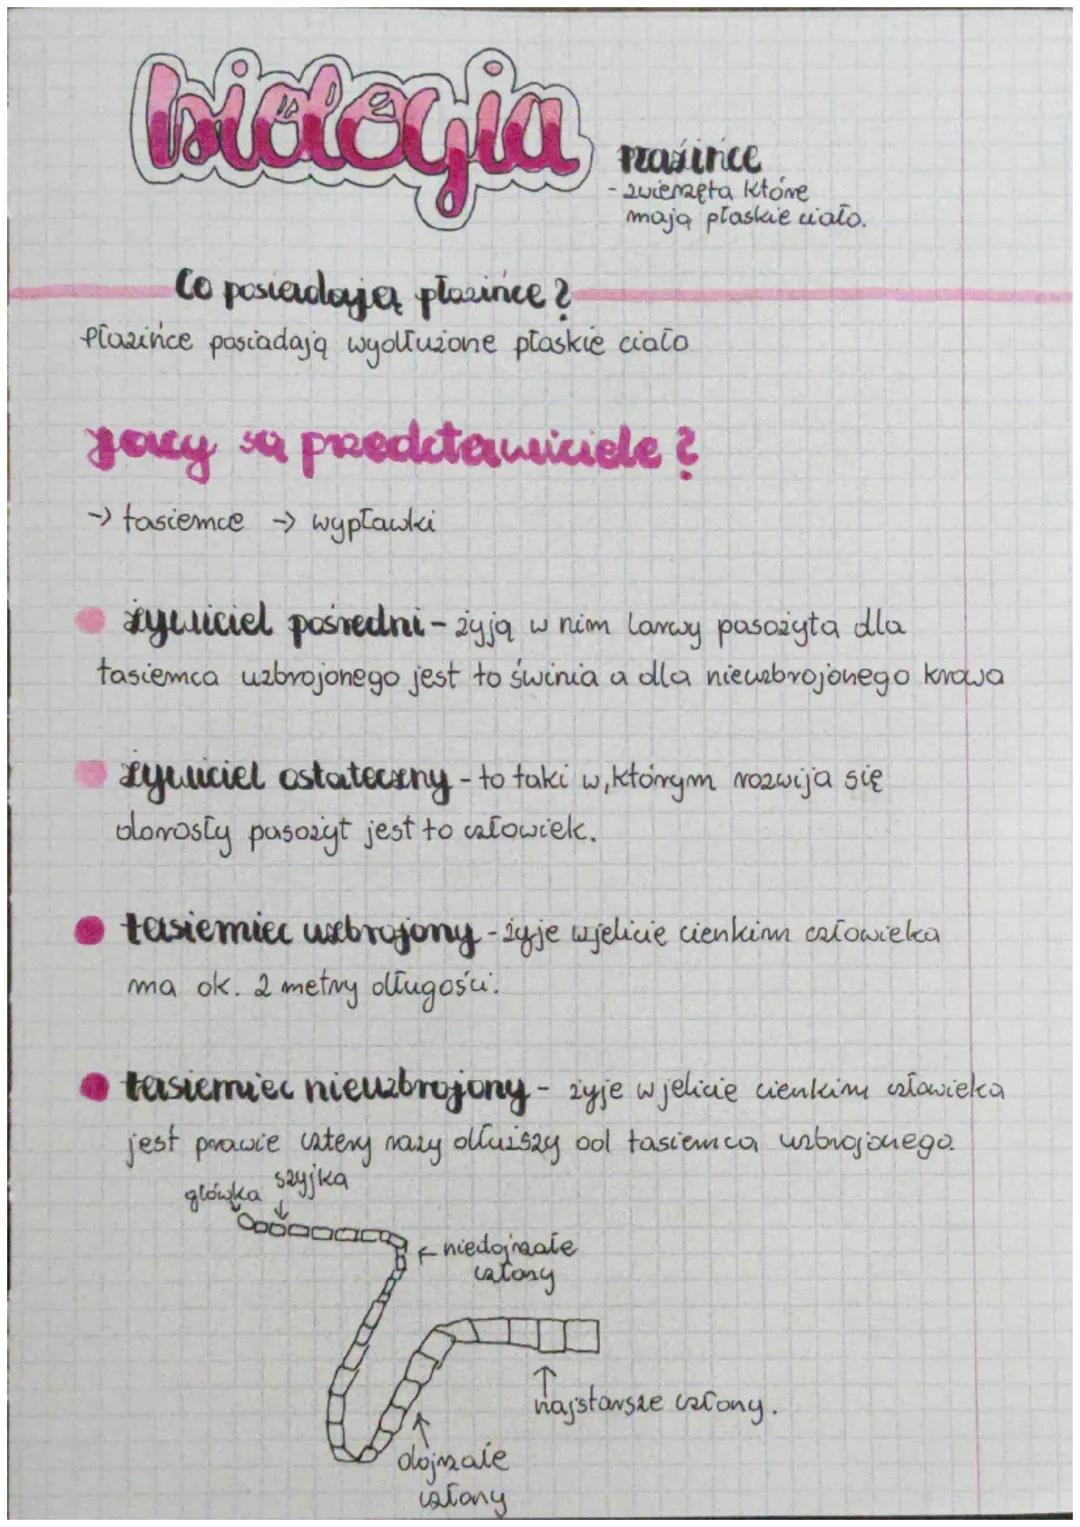 biologia
Płazińce
- zwierzęta które
mają płaskie ciało.
Co posiadają płazińce?
Płazińce posiadają wydłużone płaskie ciało
jacy są przedstawiciele?
-> tasiemce -> wypławki
żywiciel pośredni - żyją w nim larwy pasożyta dla
tasiemca uzbrojonego jest to świnia a dla nieuzbrojonego krowa
żywiciel ostateczny - to taki w, którym rozwija się
dorosły pasożyt jest to człowiek.
tasiemiec uzbrojony - żyje w jelicie cienkim człowieka
ma ok. 2 metry długości.
tasiemiec nieuzbrojony - żyje w jelicie cienkim człowieka
jest prawie cztery razy dłuższy od tasiemca uzbrojonego.
szyjka
główka
niedojrzałe
człony
najstarsze człony.
dojrzałe
człony